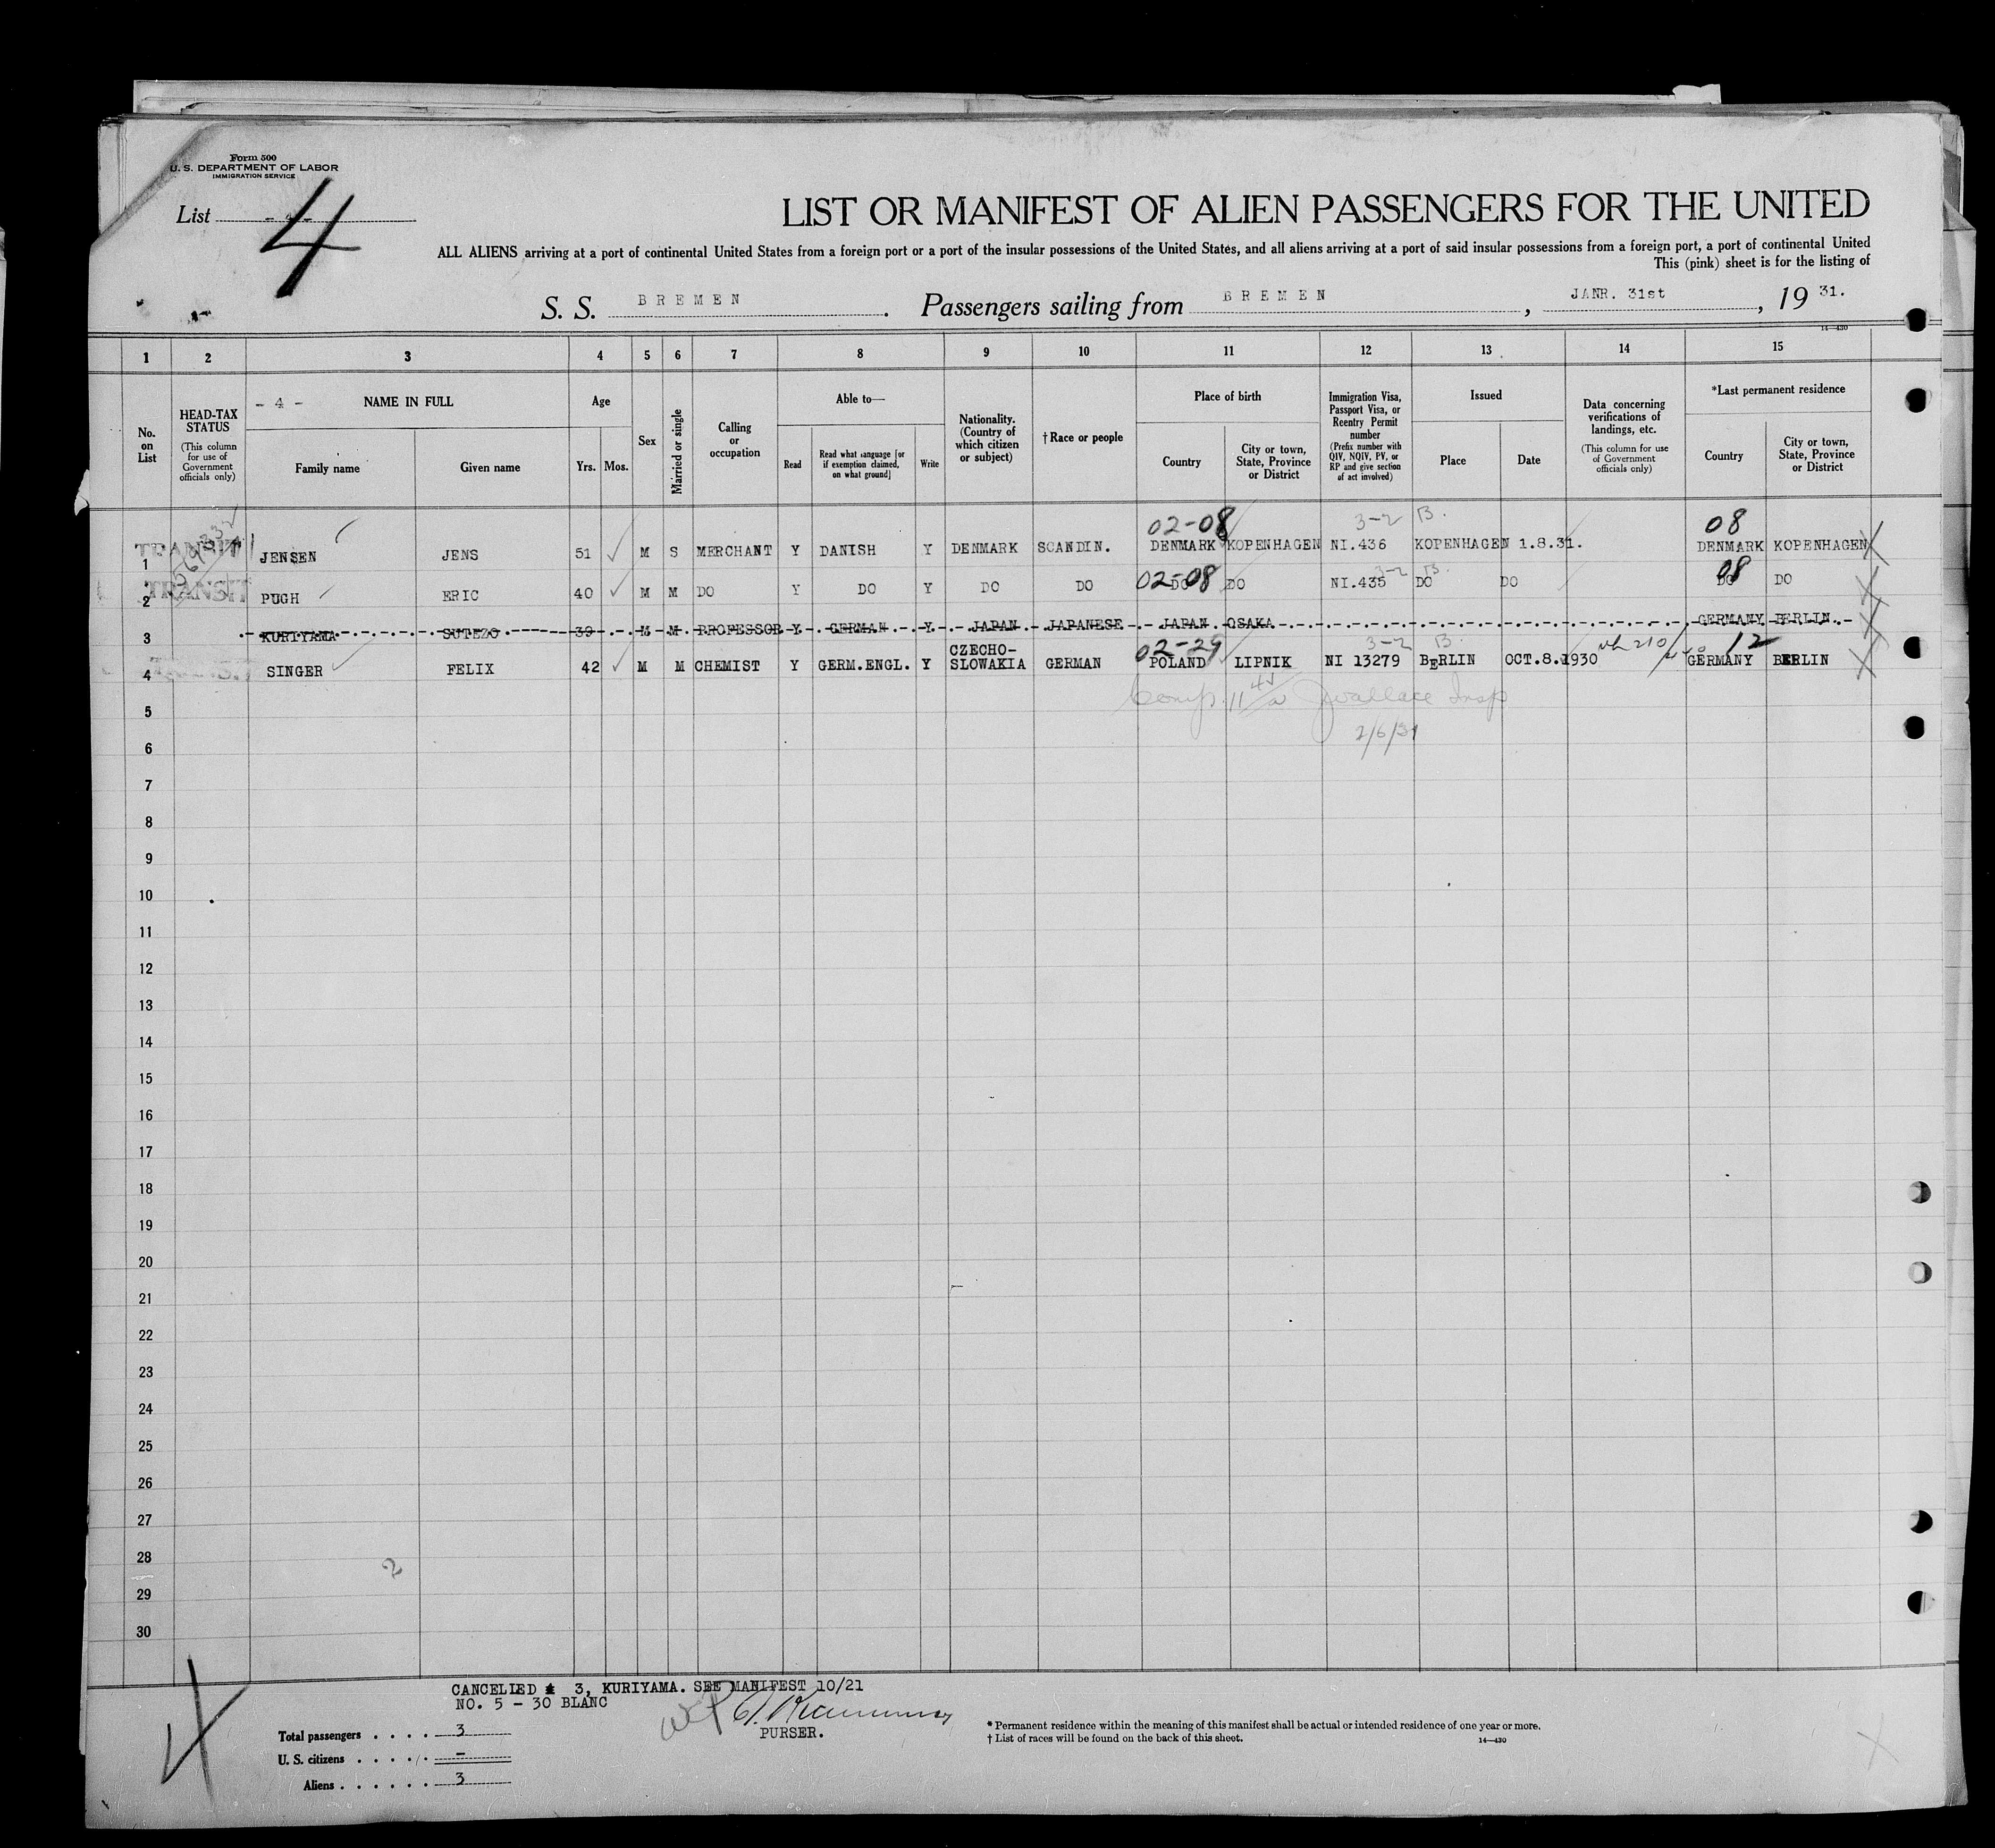 Form 500
U. S. DEPARTMENT OF LABOR
IMMIGRATION SERVICE
List - 4 -
4
LIST OR MANIFEST OF ALIEN PASSENGERS FOR THE UNITED
ALL ALIENS arriving at a port of continental United States from a foreign port or a port of the insular possessions of the United States, and all aliens arriving at a port of said insular possessions from a foreign port, a port of continental United
This (pink) sheet is for the listing of
S. S. BREMEN. Passengers sailing from BREMEN, JANR. 31st, 19 31.
14—430
1 2 3 4 5 6 7 8 9 10 11 12 13 14 15
No. on List
HEAD-TAX STATUS (This column for use of Government officials only)
- 4 - NAME IN FULL
Family name Given name
Age
Yrs. Mos.
Sex
Married or single
Calling or occupation
Able to—
Read Read what language [or if exemption claimed, on what ground] Write
Nationality. (Country of which citizen or subject)
† Race or people
Place of birth
Country City or town, State, Province or District
Immigration Visa, Passport Visa, or Reentry Permit number (Prefix number with QIV, NQIV, PV, or RP and give section of act involved)
Issued
Place Date
Data concerning verifications of landings, etc. (This column for use of Government officials only)
*Last permanent residence
Country City or town, State, Province or District
02-08 3-2 B. 08
1 TRANSIT JENSEN JENS 51 M S MERCHANT Y DANISH Y DENMARK SCANDIN. DENMARK KOPENHAGEN NI.436 KOPENHAGEN 1.8.31. DENMARK KOPENHAGEN
02-08 3-2 B. 08
2 TRANSIT PUGH ERIC 40 M M DO Y DO Y DO DO DO DO NI.435 DO DO DO DO
3 KURIYAMA SUTEZO 39 M M PROFESSOR Y GERMAN Y JAPAN JAPANESE JAPAN OSAKA GERMANY BERLIN.
02-29 3-2 B. 12
4 SINGER FELIX 42 M M CHEMIST Y GERM.ENGL. Y CZECHO-SLOWAKIA GERMAN POLAND LIPNIK NI 13279 BERLIN OCT.8.1930 GERMANY BERLIN
5 Comp. 11 45/a J Wallace Insp
6 2/6/31
7
8
9
10
11
12
13
14
15
16
17
18
19
20
21
22
23
24
25
26
27
28 2
29
30
CANCELLED # 3, KURIYAMA. SEE MANIFEST 10/21
NO. 5 - 30 BLANC
PURSER.
Total passengers . . . . 3
U. S. citizens . . . . . –
Aliens . . . . . . 3
* Permanent residence within the meaning of this manifest shall be actual or intended residence of one year or more.
† List of races will be found on the back of this sheet.
14—430